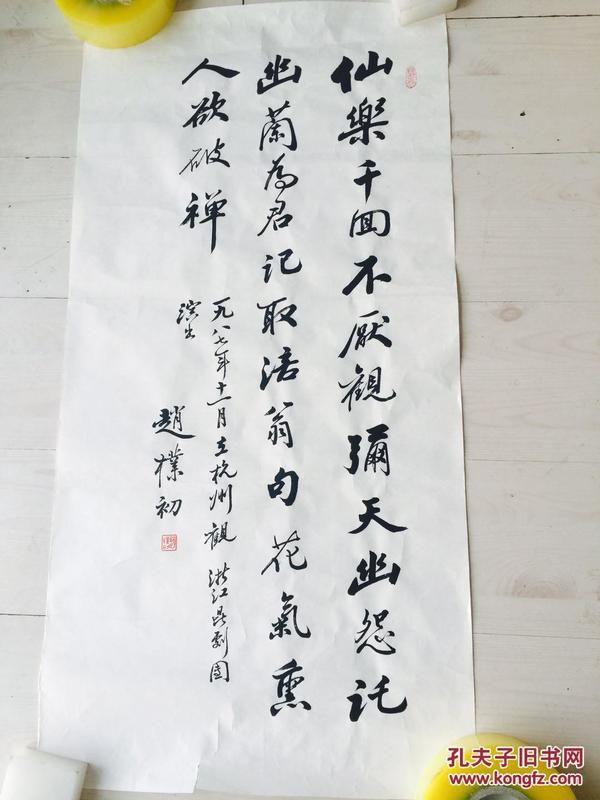 仙樂千回不厭觀彌天幽怨託
幽蘭為君記取涪翁句花氣熏
人欲破禅
一九八七年十一月在杭州觀浙江昆劇團
演出
趙樸初
孔夫子旧书网
www.kongfz.com